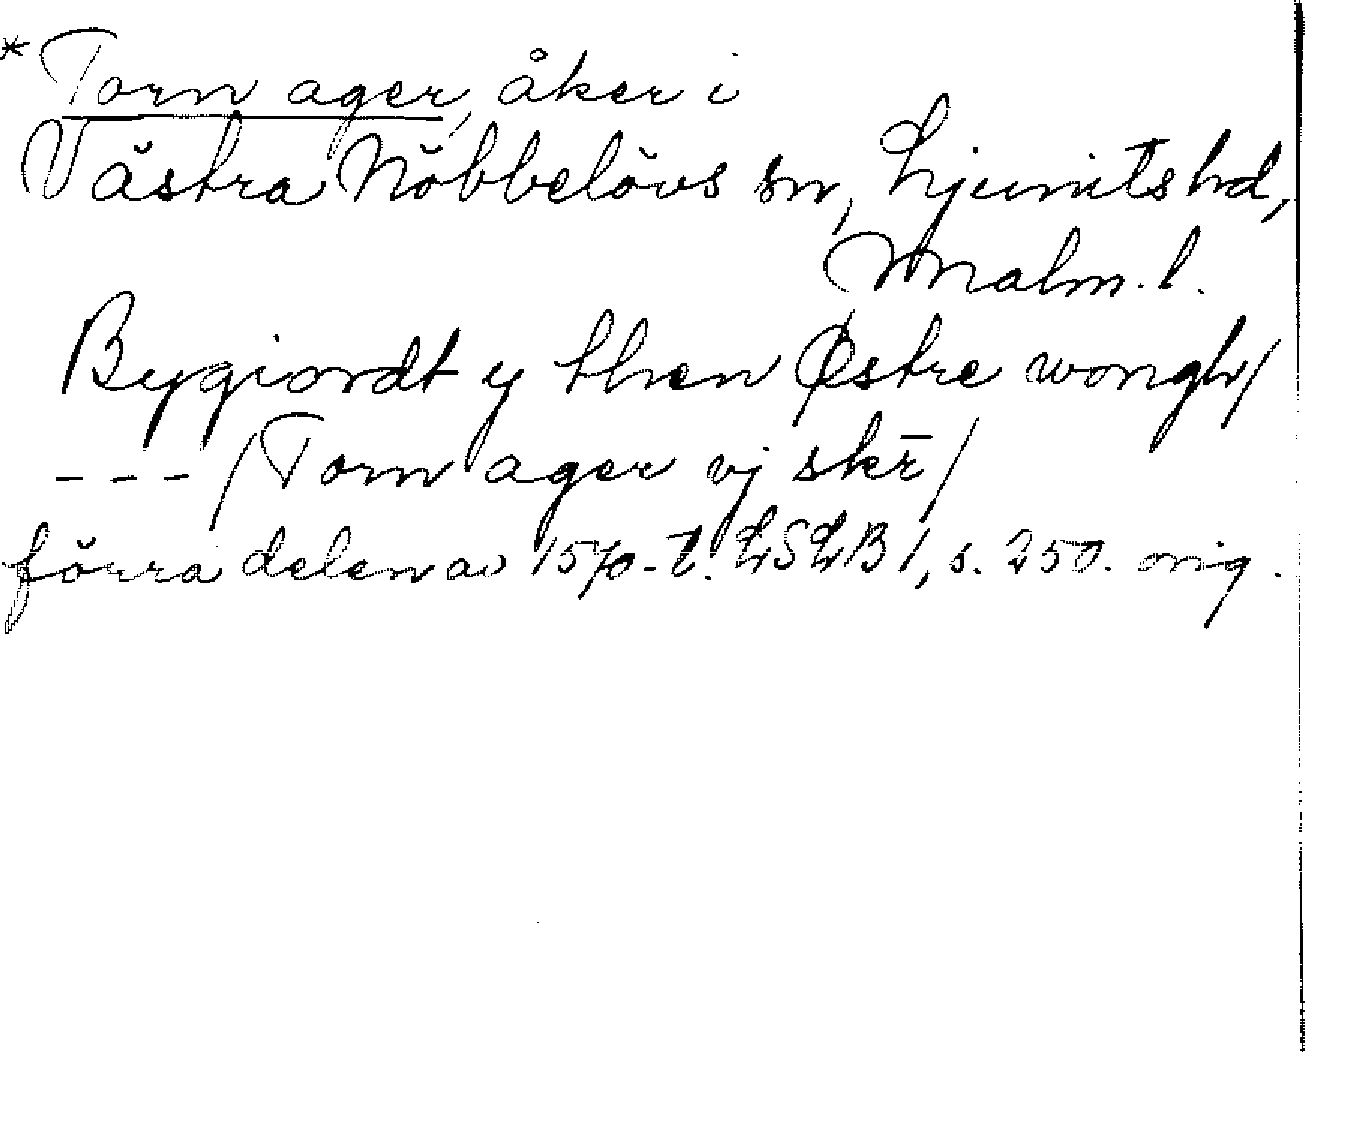 * Torn ager, åker i
Västra Nöbbelövs sn, Ljunits hd,
Malm. l.
Bygiordt y then Østre wongh/
--- /Torn ager vj skr̄/
förra delen av 1570-t. LSLB 1, s. 250. orig.